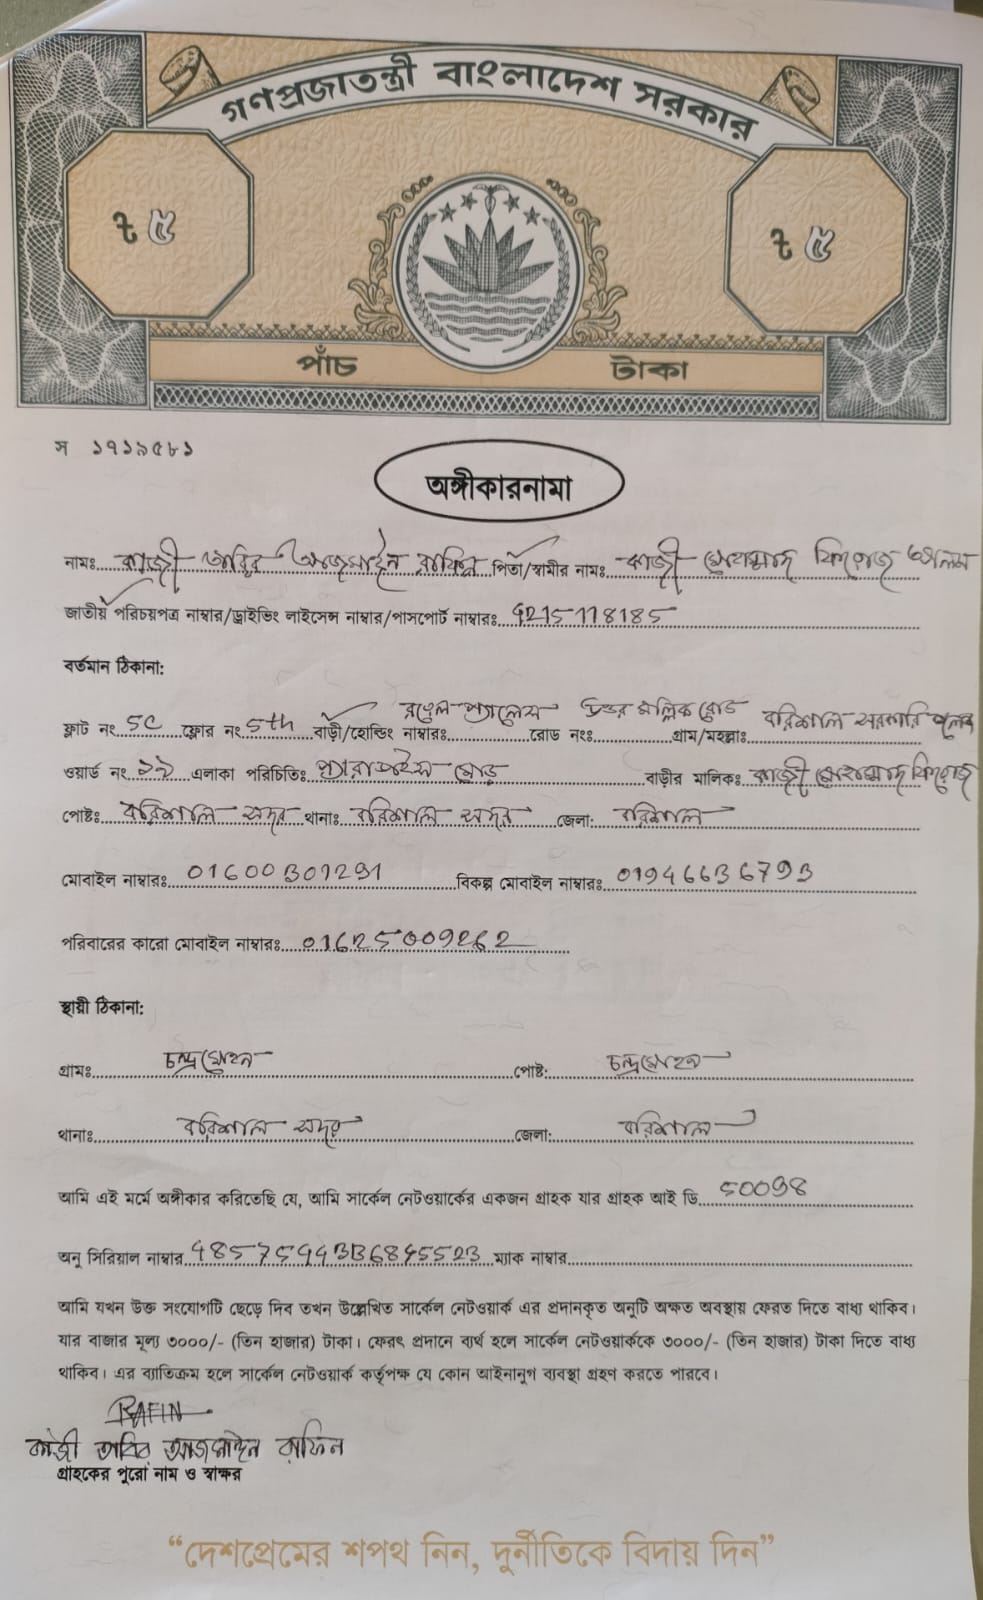 গণপ্রজাতন্ত্রী বাংলাদেশ সরকার
৳ ৫ ৳ ৫
পাঁচ টাকা
স ১৭১৯৫৮১
অঙ্গীকারনামা
নামঃ কাজী আবির আজমাইন রাফিন পিতা/স্বামীর নামঃ কাজী মোহাম্মাদ ফিরোজ আলম
জাতীয় পরিচয়পত্র নাম্বার/ড্রাইভিং লাইসেন্স নাম্বার/পাসপোর্ট নাম্বারঃ 4215118185
বর্তমান ঠিকানা:
ফ্লাট নং 5C ফ্লোর নং 5th বাড়ী/হোল্ডিং নাম্বারঃ প্যালেস রোড নংঃ উত্তর মল্লিক রোড গ্রাম/মহল্লাঃ বরিশাল সরকারি
ওয়ার্ড নং ১৯ এলাকা পরিচিতিঃ প্যারাডাইস মোড় বাড়ীর মালিকঃ কাজী মোহাম্মাদ ফিরোজ
পোষ্টঃ বরিশাল সদর থানাঃ বরিশাল সদর জেলা: বরিশাল
মোবাইল নাম্বারঃ 01600301291 বিকল্প মোবাইল নাম্বারঃ 01946636793
পরিবারের কারো মোবাইল নাম্বারঃ 01625009262
স্থায়ী ঠিকানা:
গ্রামঃ চন্দ্রমোহন পোষ্ট: চন্দ্রমোহন
থানাঃ বরিশাল সদর জেলা: বরিশাল
আমি এই মর্মে অঙ্গীকার করিতেছি যে, আমি সার্কেল নেটওয়ার্কের একজন গ্রাহক যার গ্রাহক আই ডি 50098
অনু সিরিয়াল নাম্বার ম্যাক নাম্বার
আমি যখন উক্ত সংযোগটি ছেড়ে দিব তখন উল্লেখিত সার্কেল নেটওয়ার্ক এর প্রদানকৃত অনুটি অক্ষত অবস্থায় ফেরত দিতে বাধ্য থাকিব।
যার বাজার মূল্য ৩০০০/- (তিন হাজার) টাকা। ফেরৎ প্রদানে ব্যর্থ হলে সার্কেল নেটওয়ার্ককে ৩০০০/- (তিন হাজার) টাকা দিতে বাধ্য
থাকিব। এর ব্যতিক্রম হলে সার্কেল নেটওয়ার্ক কর্তৃপক্ষ যে কোন আইনানুগ ব্যবস্থা গ্রহণ করতে পারবে।
RAFIN
কাজী আবির আজমাইন রাফিন
গ্রাহকের পুরো নাম ও স্বাক্ষর
“দেশপ্রেমের শপথ নিন, দুর্নীতিকে বিদায় দিন”